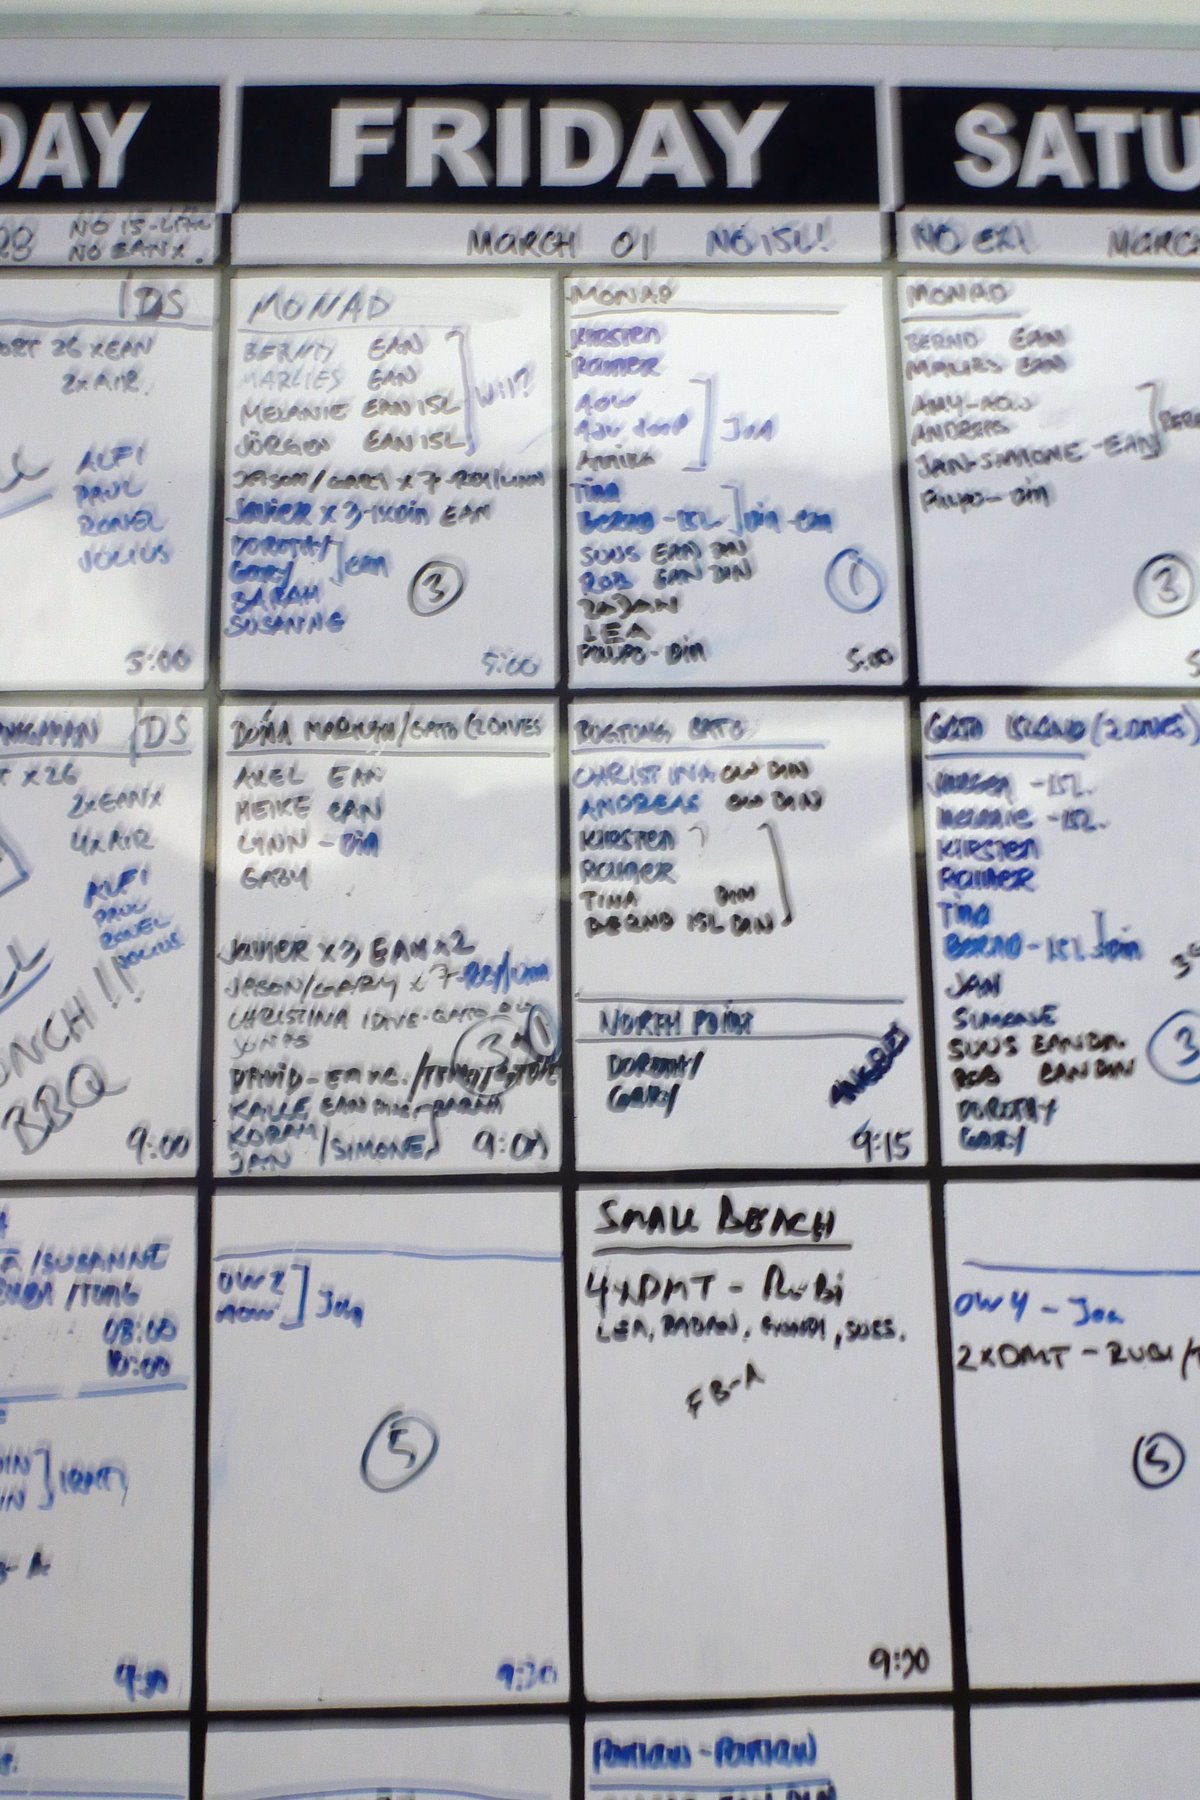 DAY
FRIDAY
SATU
28 NO 15-LITR
NO EANX.
MARCH 01 NO 15L!
NO EX1 MARCH
/DS
26 XEAN
2x AIR.
ALFI
PAUL
RONEL
JULIUS
5:00
MONAD
EAN
MARLIES EAN
MELANIE EAN 15L
JÖRGEN EAN 15L
JASON/GARY x 7-
JAVIER x 3-1XDIN EAN
DOROTHY
GARY
EAN
SARAH
SUSANNE
3
5:00
MONAD
KIRSTEN
RAINER
AOW
ANNIKA
JOA
TINA
BERND -15L
DIN-EAN
SUUS EAN DIN
ROB EAN DIN
RADAN
LEA
PULPO-DIN
1
5:00
MONAD
BERND EAN
MARLIES EAN
AMY-AOW
ANDREAS
JAN-SIMONE-EAN
PULPO-DIN
3
/DS
T x 26
2xEANX
4xAIR
ALFI
PAUL
RONEL
JULIUS
BBQ
9:00
DOÑA MARILYN/GATO (2 DIVES
AXEL EAN
HEIKE EAN
LYNN - DIN
GABY
JAVIER x 3, EAN x 2
JASON/GARY x 7-
CHRISTINA 1 DIVE-GATO OW
JONAS
DAVID-
KALLE EAN
SARAH
KORAY
JAN /SIMONE
9:00
BUGTONG BATO
CHRISTINA OW DIN
ANDREAS OW DIN
KIRSTEN
RAINER
TINA DIN
BERND 15L DIN
NORTH POINT
DOROTHY
GARY
9:15
GATO ISLAND (2 DIVES)
JÖRGEN -15L.
MELANIE -15L.
KIRSTEN
RAINER
TINA
BERND -15L DIN
JAN
SIMONE
SUUS EAN DIN
ROB EAN DIN
DOROTHY
GARY
3
/SUSANNE
08:00
10:00
9:30
OW 2
AOW
JOA
5
9:30
SMALL BEACH
4xDMT - RUBI
LEA, RADAN, , SUUS.
FB-A
9:30
OW 4 - JOA
2xDMT - RUBI/T
5